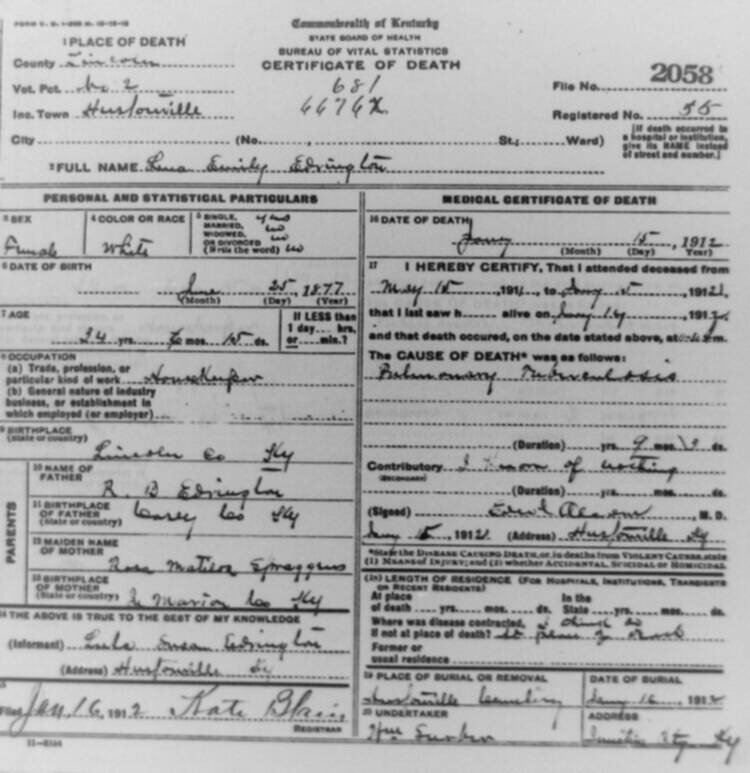 Commonwealth of Kentucky
STATE BOARD OF HEALTH
BUREAU OF VITAL STATISTICS
CERTIFICATE OF DEATH
1 PLACE OF DEATH
County Lincoln
Vot. Pct. No 2
Inc. Town Hustonville
City (No. , St.; Ward)
681
File No. 2058
Registered No. 55
[If death occurred in a hospital or institution, give its NAME instead of street and number.]
2 FULL NAME Lena Emily Edrington
PERSONAL AND STATISTICAL PARTICULARS
3 SEX
Female
4 COLOR OR RACE
White
5 SINGLE, MARRIED, WIDOWED, OR DIVORCED (Write the word)
6 DATE OF BIRTH
June 25 1877
(Month) (Day) (Year)
7 AGE
yrs. 6 mos. ds.
If LESS than 1 day hrs. or min.?
8 OCCUPATION
(a) Trade, profession, or particular kind of work Housekeeper
(b) General nature of industry business, or establishment in which employed (or employer)
9 BIRTHPLACE
(State or country)
Lincoln Co Ky
PARENTS
10 NAME OF FATHER
R. B Edrington
11 BIRTHPLACE OF FATHER
(State or country)
Casey Co Ky
12 MAIDEN NAME OF MOTHER
Rosa Matilda
13 BIRTHPLACE OF MOTHER
(State or country)
Marion Co Ky
14 THE ABOVE IS TRUE TO THE BEST OF MY KNOWLEDGE
(Informant) Lula Susan Edrington
(Address) Hustonville Ky
15
Filed Jan. 16, 1912 Kate
REGISTRAR
MEDICAL CERTIFICATE OF DEATH
16 DATE OF DEATH
Jany 15, 1912
(Month) (Day) (Year)
17 I HEREBY CERTIFY, That I attended deceased from
May 15 1911, to Jany 15, 1912,
that I last saw h alive on Jany 14, 1912,
and that death occured, on the date stated above, at m.
The CAUSE OF DEATH* was as follows:
Pulmonary Tuberculosis
(Duration) yrs. 9 mos. ds.
Contributory I know of nothing
(SECONDARY)
(Duration) yrs. mos. ds.
(Signed) , M. D.
Jany 15, 1912 (Address) Hustonville Ky
*State the DISEASE CAUSING DEATH, or, in deaths from VIOLENT CAUSES, state
(1) MEANS OF INJURY; and (2) whether ACCIDENTAL, SUICIDAL or HOMICIDAL.
LENGTH OF RESIDENCE (FOR HOSPITALS, INSTITUTIONS, TRANSIENTS OR RECENT RESIDENTS)
At place of death yrs. mos. ds.
In the State yrs. mos. ds.
Where was disease contracted, I think so
If not at place of death? at place of death
Former or usual residence
19 PLACE OF BURIAL OR REMOVAL
Hustonville Cemetery
DATE OF BURIAL
Jany 16, 1912
20 UNDERTAKER
ADDRESS
Ky